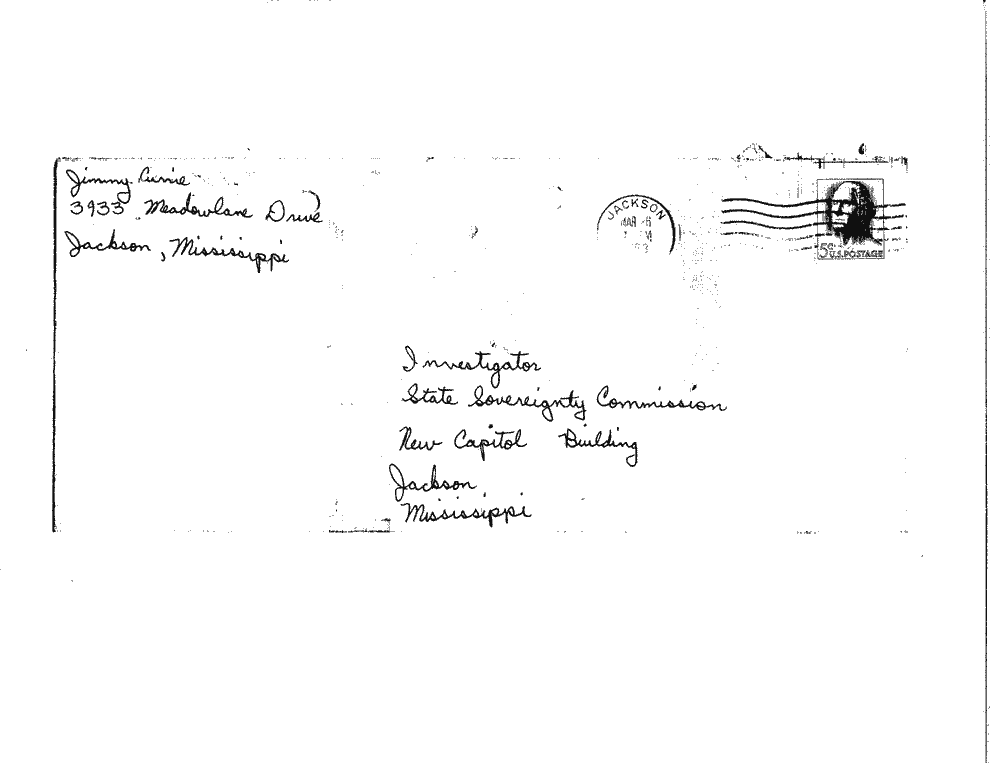 Jimmy Currie
3933 Meadowlane Drive
Jackson, Mississippi
JACKSON
MAR 6
5¢ U.S. POSTAGE
Investigator
State Sovereignty Commission
New Capitol Building
Jackson,
Mississippi